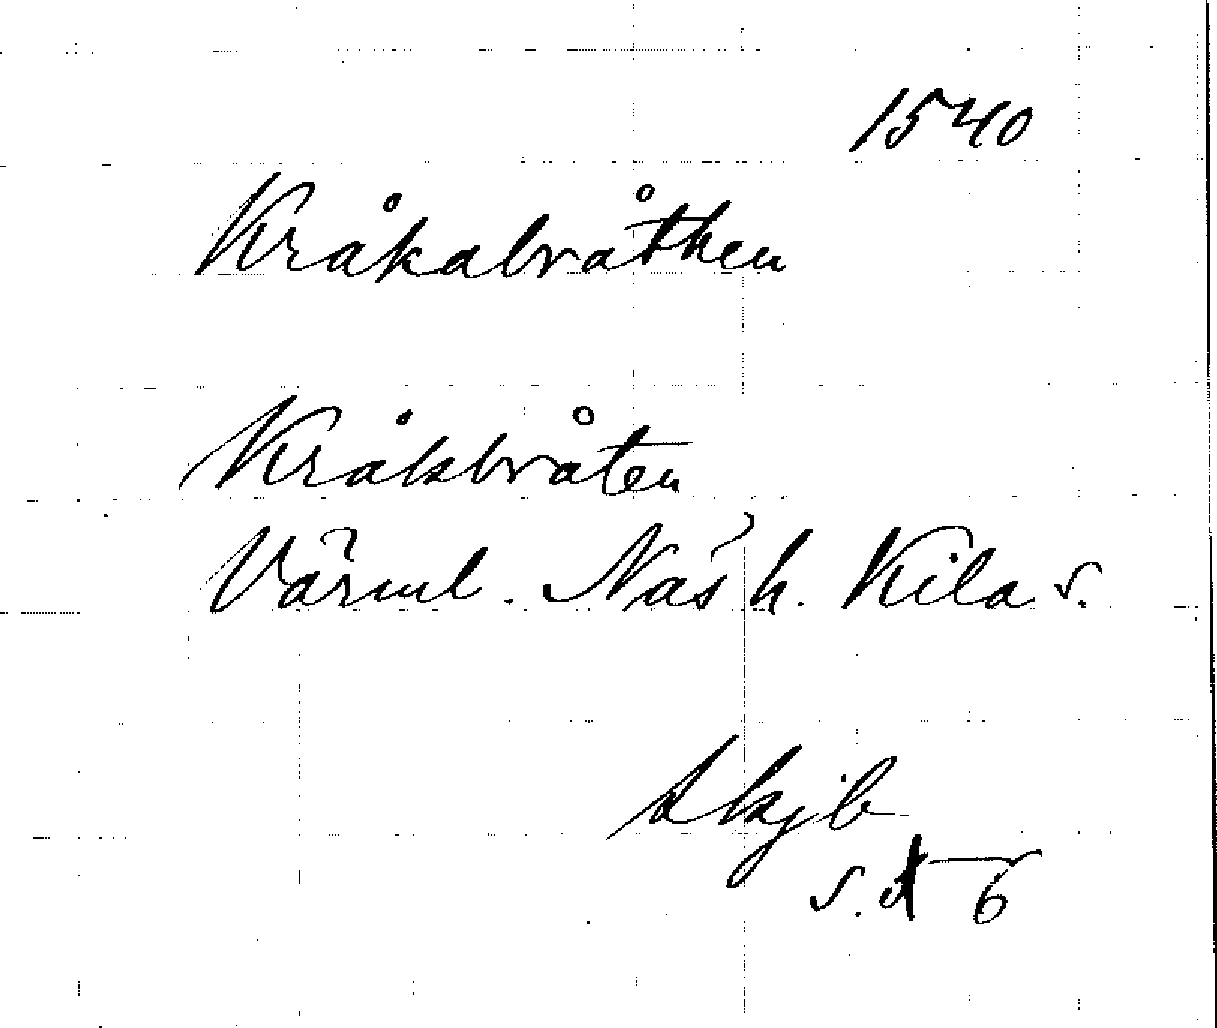 1540
Kråkabråthen
Kråkbråten
Värml. Näs h. Kila s.
Skjb
s. 6